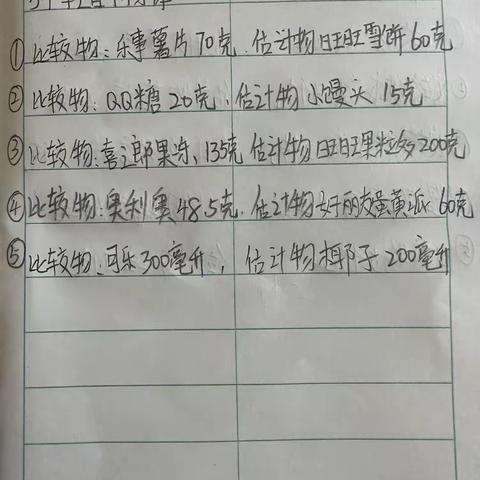 ①比较物:乐事薯片70克.估计物旺旺雪饼60克
②比较物:QQ糖20克,估计物小馒头15克
③比较物:喜之郎果冻,135克 估计物旺旺果粒多200克
④比较物:奥利奥48.5克.估计物好丽友蛋黄派60克
⑤比较物:可乐300毫升,估计物椰子200毫升